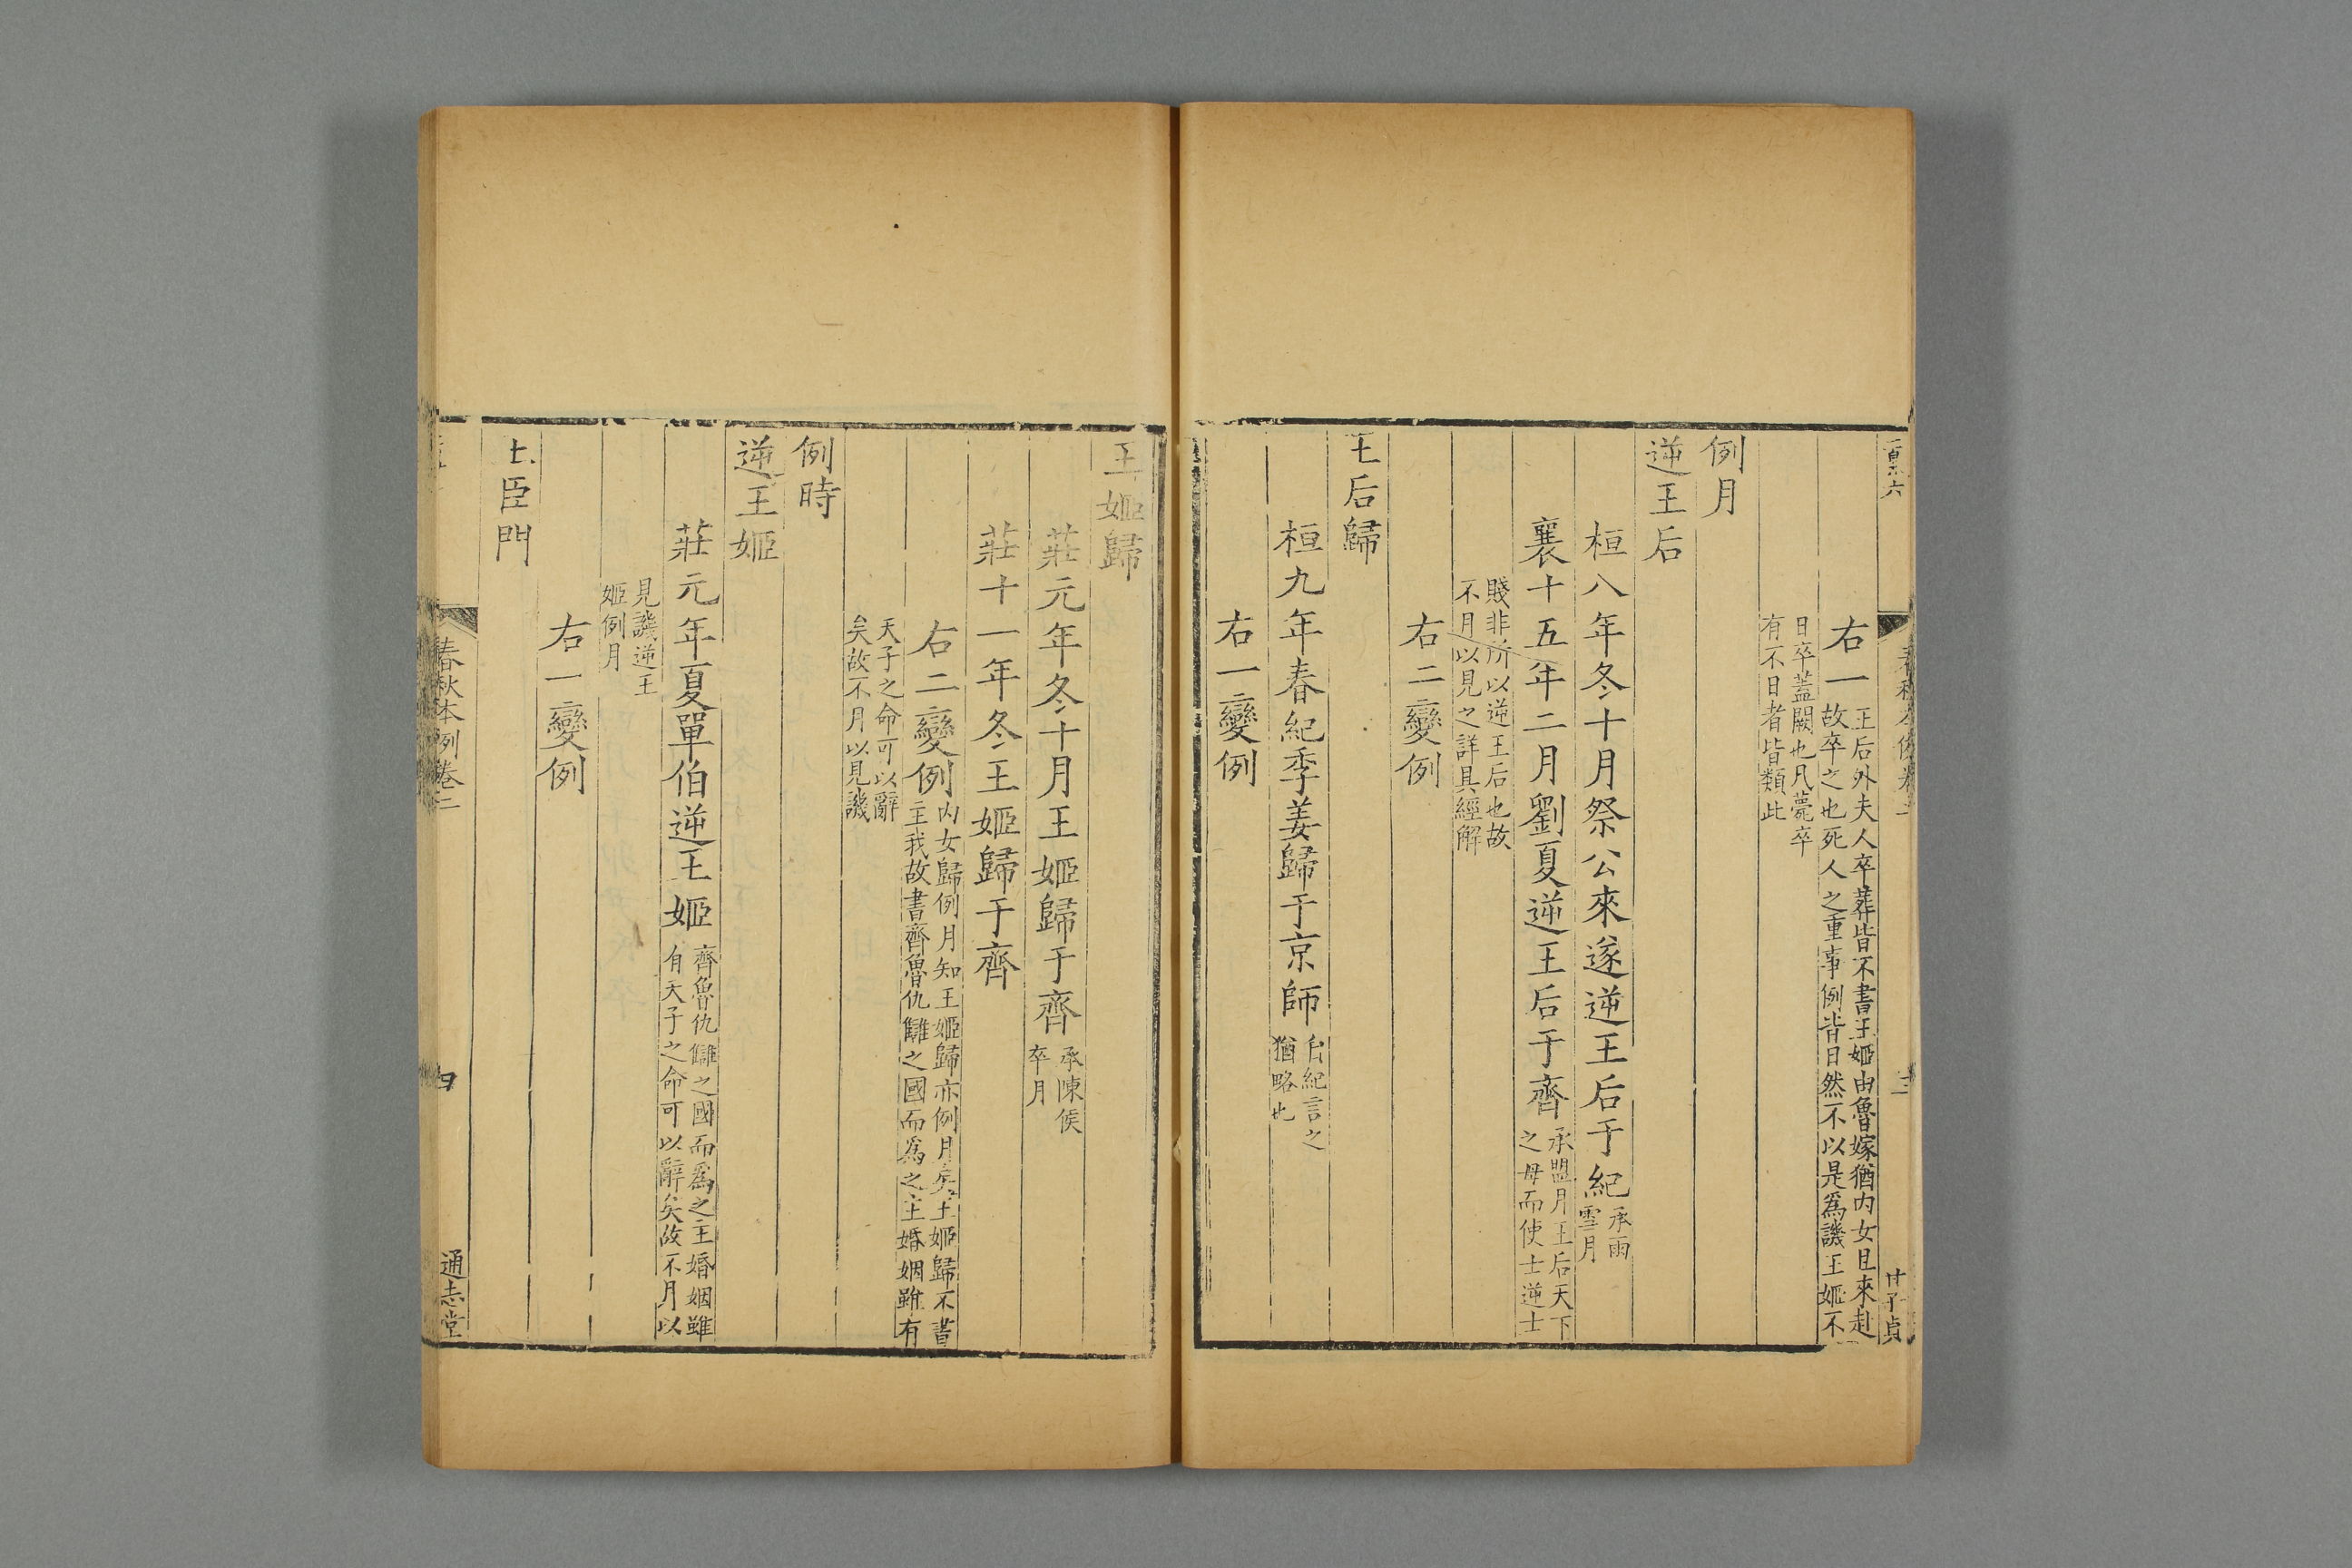 右一王后外夫人卒葬皆不書王姬由魯嫁猶内女且來赴
故卒之也死人之重事例皆日然不以是爲譏王姬不
日卒蓋闕也凡薨卒
有不日者皆類此
例月
逆王后
桓八年冬十月祭公來遂逆王后于紀承雨
雪月
襄十五年二月劉夏逆王后于齊承盟月王后天下
之母而使士逆士
賤非所以逆王后也故
不月以見之詳具經解
右二變例
王后歸
桓九年春紀季姜歸于京師自紀言之
猶略也
右一變例
三
甘子貞
王姬歸
莊元年冬十月王姬歸于齊承陳侯
卒月
莊十一年冬王姬歸于齊
右二變例内女歸例月知王姬歸亦例月矣王姬歸不書
主我故書齊魯仇讎之國而爲之主婚姻雖有
天子之命可以辭
矣故不月以見譏
例時
逆王姬
莊元年夏單伯逆王姬齊魯仇讎之國而爲之主婚姻雖
有天子之命可以辭矣故不月以
見譏逆王
姬例月
右一變例
王臣門
春秋本例卷二
四
通志堂